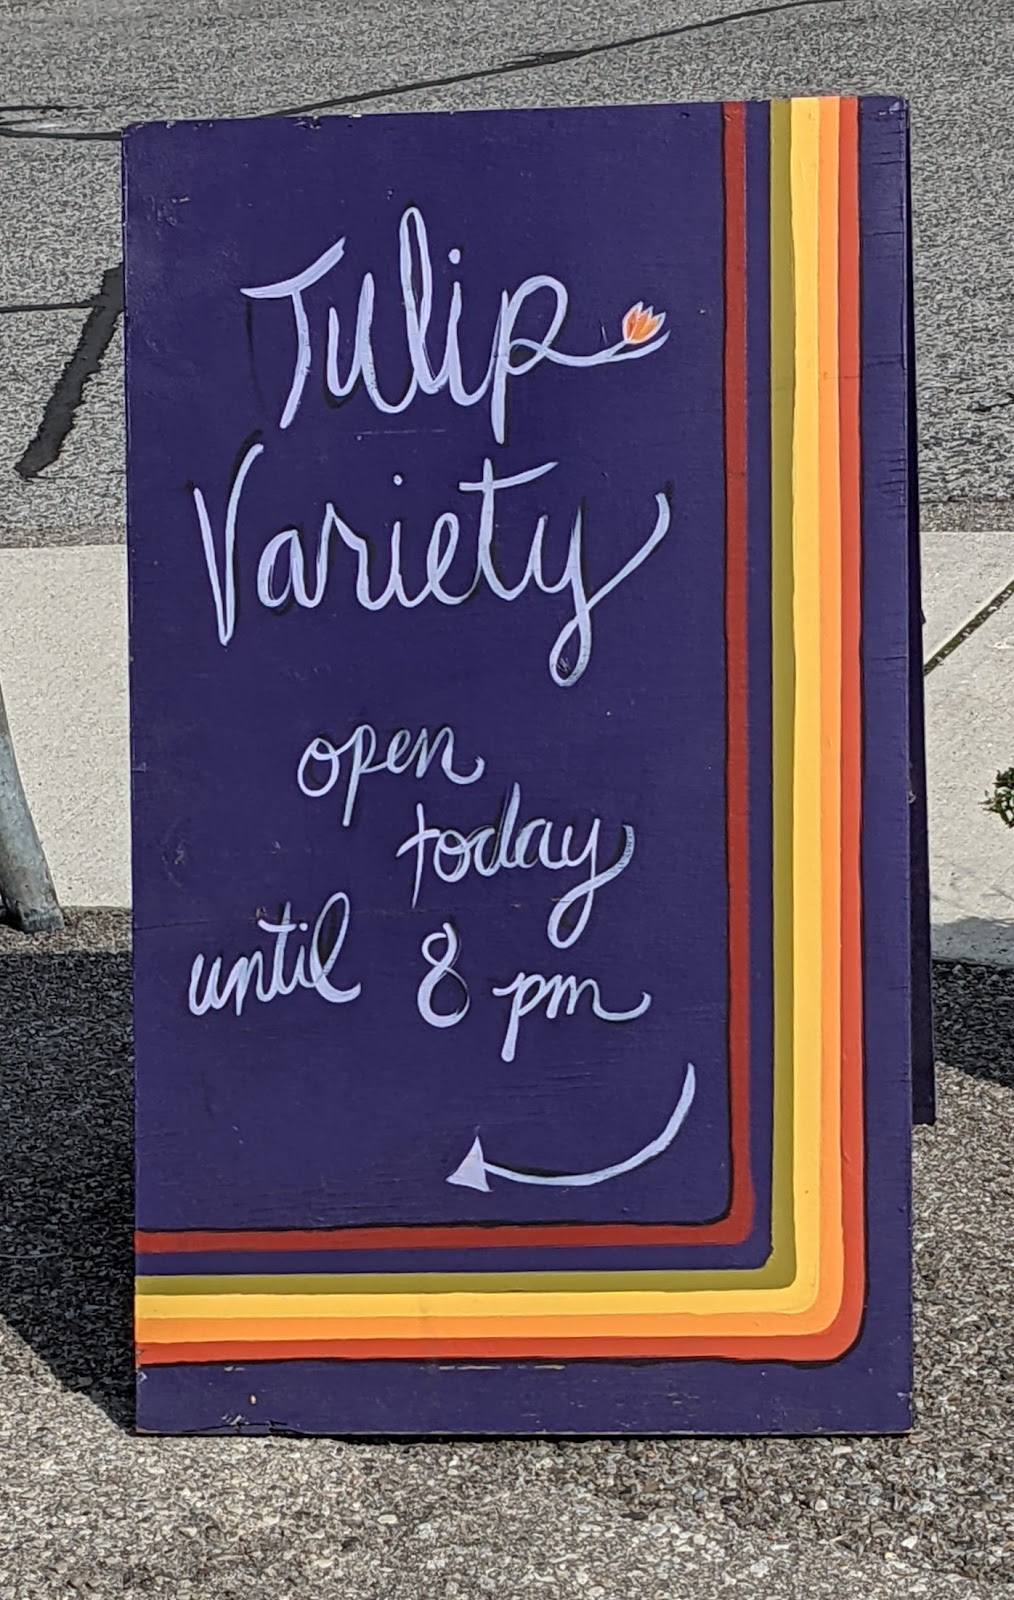 Tulip
Variety
open
today
until 8 pm